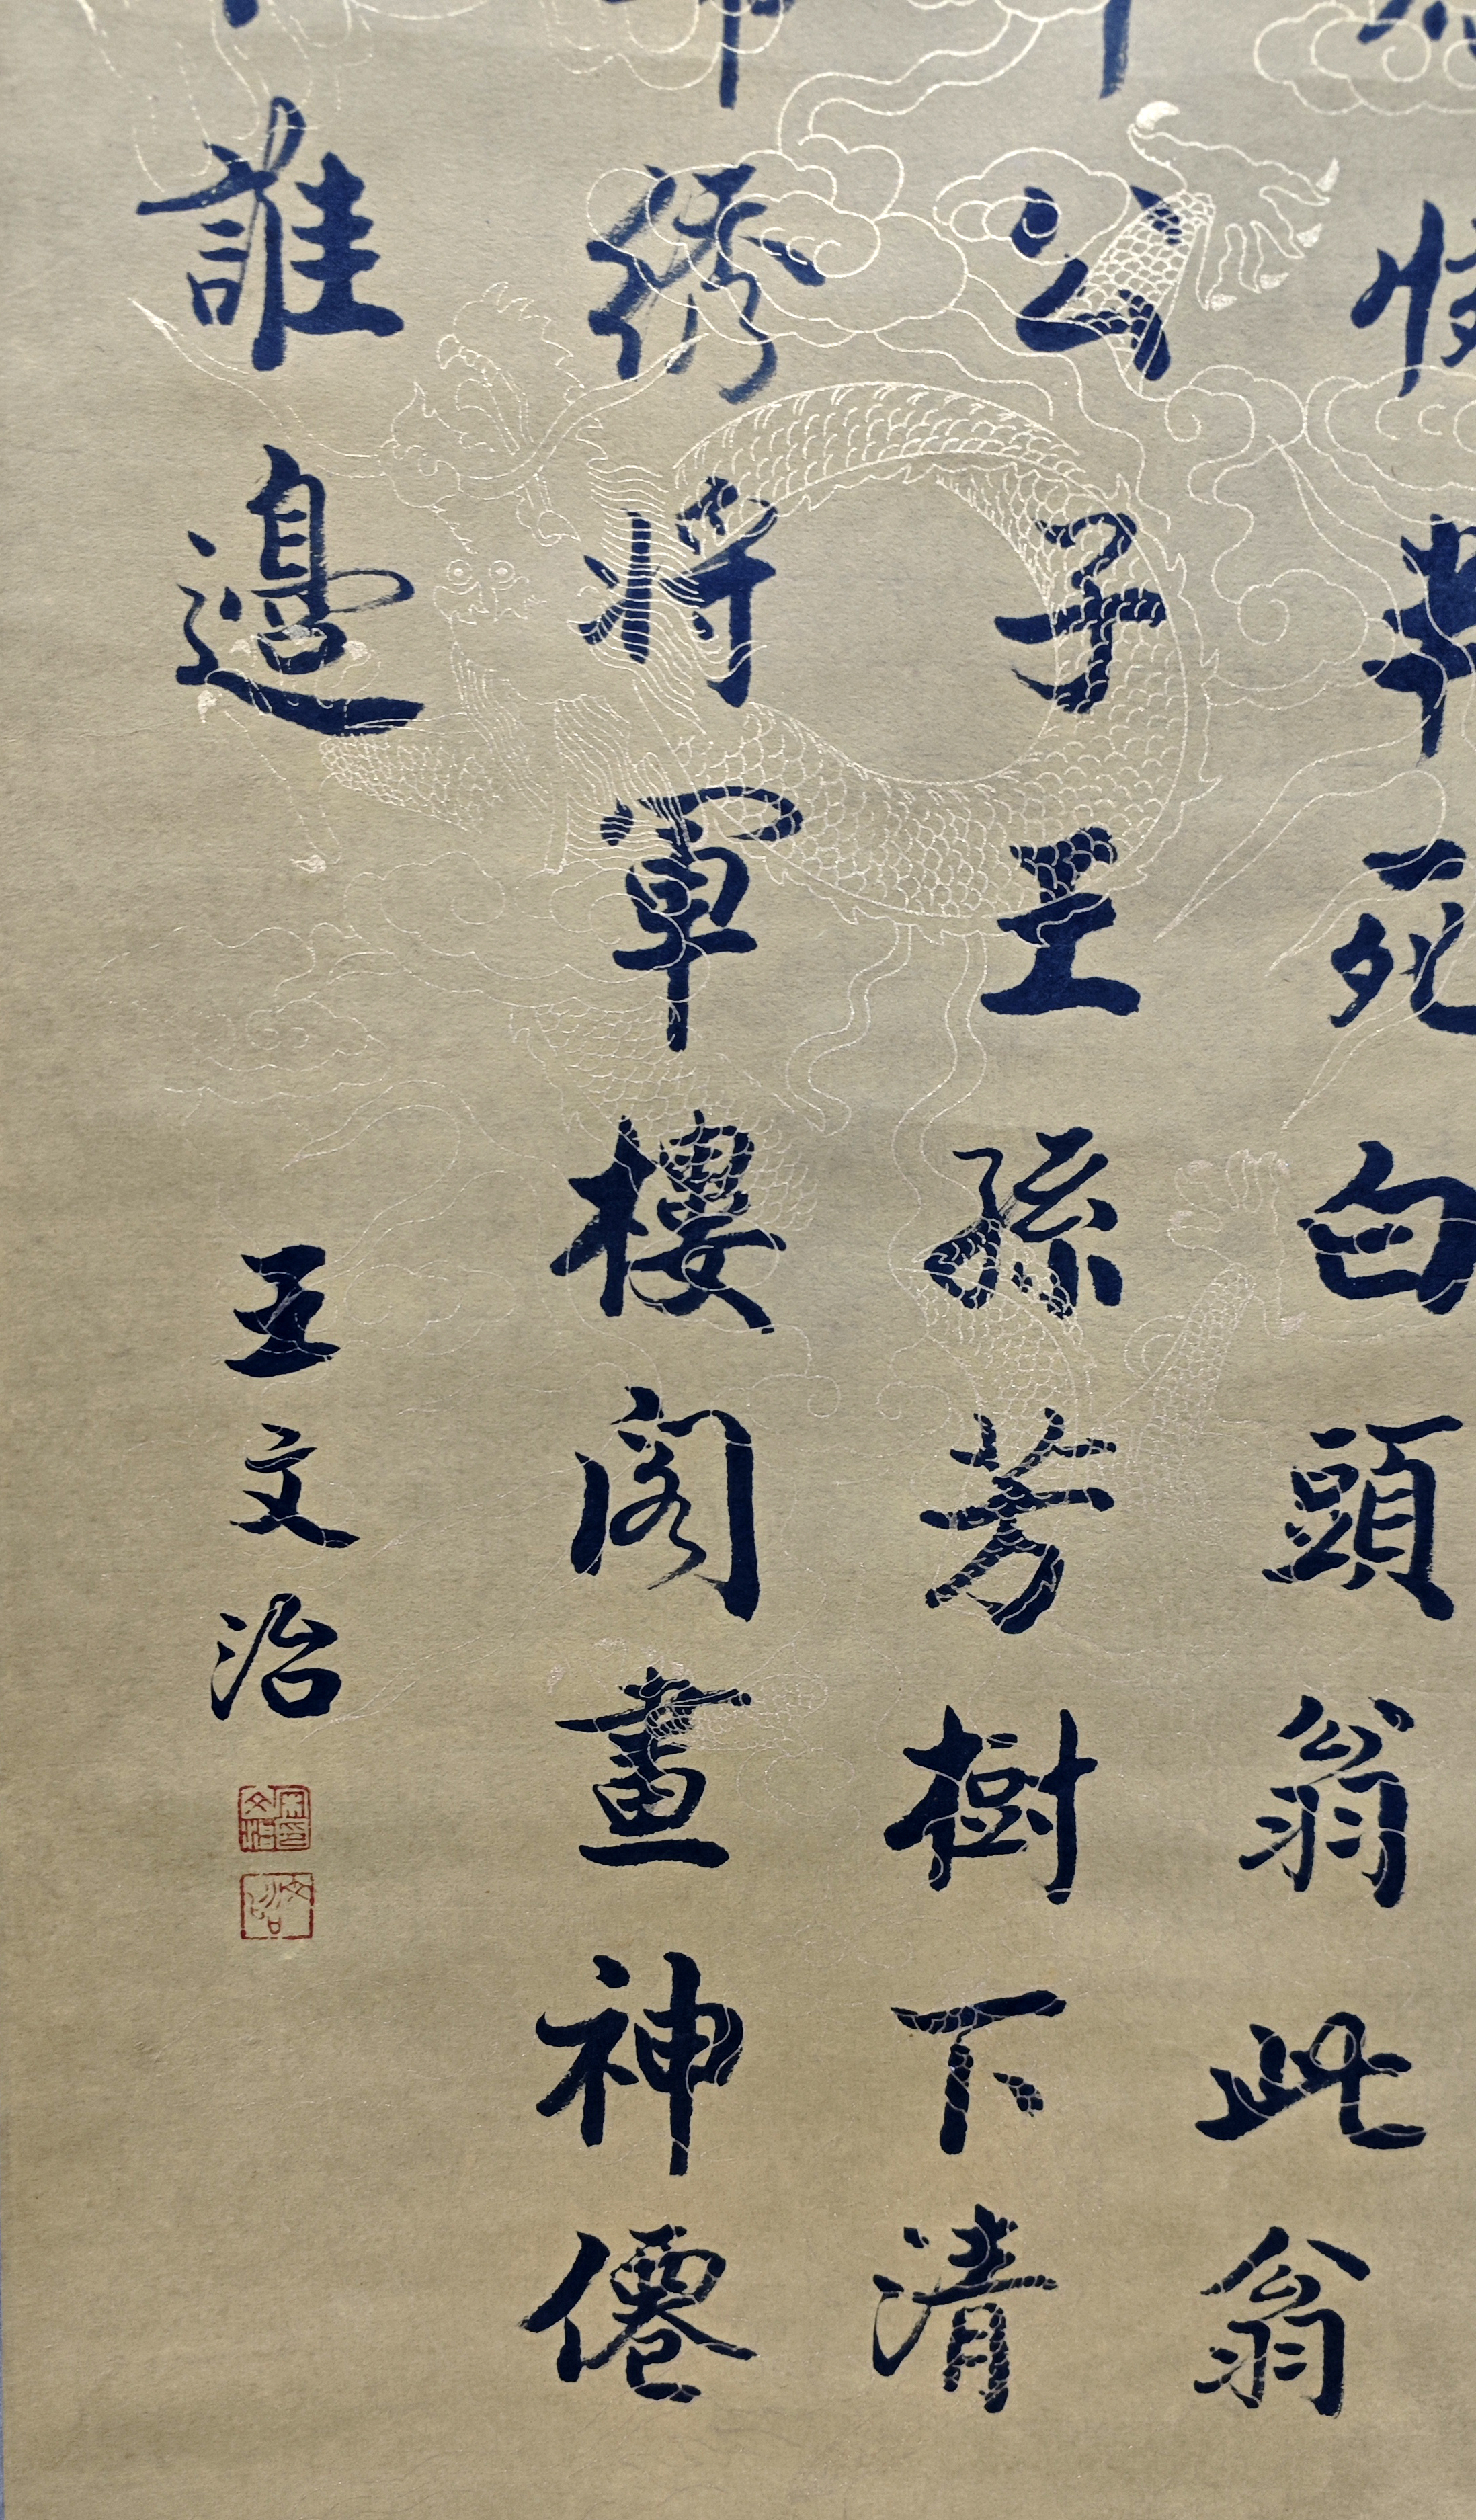 半死白頭翁此翁
公子王孫芳樹下清
繡將軍樓閣畫神僊
誰邊
王文治